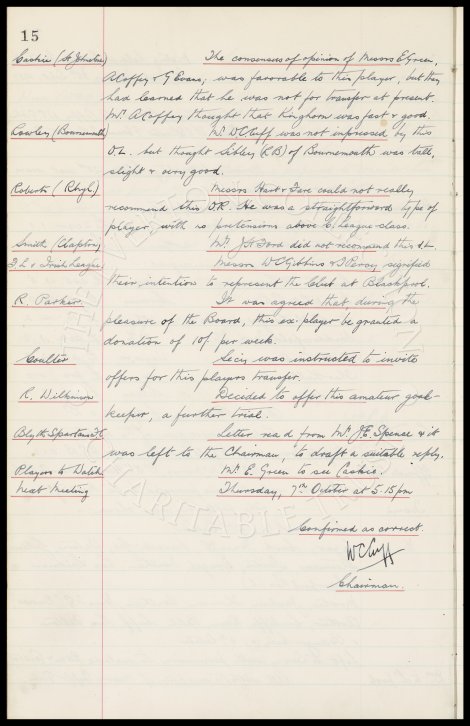 15
Caskie (St Johnstone) The consensus of opinion of Messrs E Green,
A Coffey & G Evans, was favorable to this player, but they
had learned that he was not for transfer at present.
Mr. A Coffey thought that Kinghorn was fast & good.
Rowley (Bournemouth) Mr. W C Cuff was not impressed by this
O.L. but thought Sibley (R B) of Bournemouth was tall,
slight & very good.
Roberts (Rhyl) Messrs Hart & Fare could not really
recommend this O.R. He was a straightforward type of
player, with no pretensions above C. League class.
Smith (Clapton) Mr. Jt Fare did not recommend this
F.L. v Irish League Messrs W C Gibbins & T Percy signified
their intention to represent the Club at Blackpool.
R. Parker. It was agreed that during the
pleasure of the Board, this ex-player be granted a
donation of 10/- per week.
Coulter Secy was instructed to invite
offers for this players transfer.
R. Wilkinson Decided to offer this amateur goal-
keeper, a further trial.
Blyth Spartans Letter read from Mr. J E Spence & it
was left to the Chairman, to draft a suitable reply.
Players to Watch Mr. E. Green to see Caskie.
Next Meeting Thursday, 7th October at 5-15 pm
Confirmed as correct.
W C Cuff
Chairman.